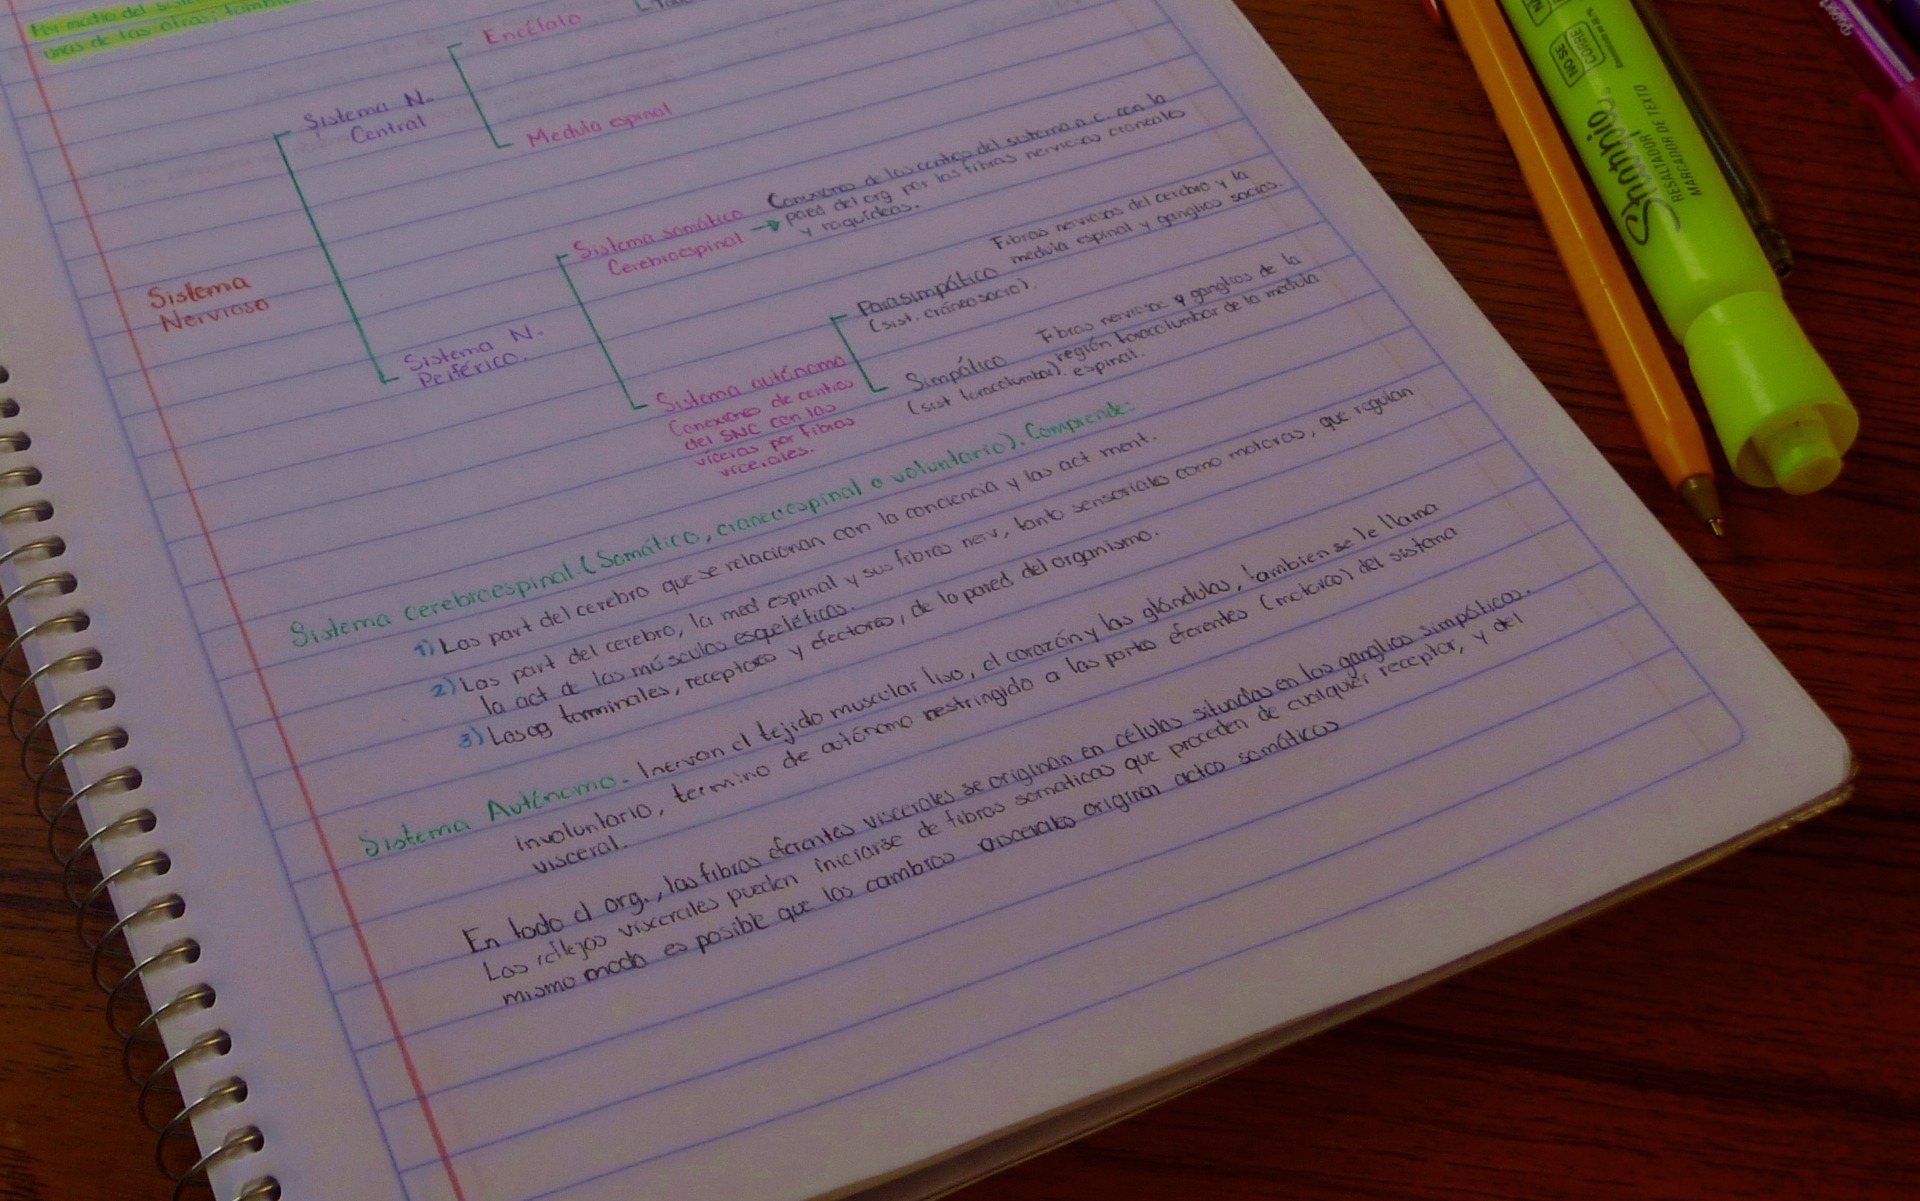 Por medio del
unas de las otras; también
Encéfalo
Sistema N.
Central
Medula espinal
Sistema somático
Cerebroespinal →
Conexiones de los centros del sistema n.c. con la
pared del org por las fibras nerviosas craneales
y raquídeas.
Sistema
Nervioso
Sistema N.
Periférico.
Parasimpático
(sist. cráneosacro).
Fibras nerviosas del cerebro y la
medula espinal y ganglios sacros.
Sistema autónomo
Conexiones de centros
del SNC con las
víceras por fibras
vicerales.
Simpático
(sist toracolumbar).
Fibras nerviosas y ganglios de la
región toracolumbar de la medula
espinal.
Sistema cerebroespinal.(Somático, craneoespinal o voluntario). Comprende:
1) Las part del cerebro que se relacionan con la conciencia y las act ment.
2) Las part del cerebro, la med espinal y sus fibras nerv, tanto sensoriales como motoras, que regulan
la act de los músculos esqueléticos.
3) Las terminales, receptores y efectores, de la pared del organismo.
Sistema Autónomo. Inervan el tejido muscular liso, el corazón y las glándulas, tambien se le llama
involuntario, termino de autónomo restringido a las partes eferentes (motoras) del sistema
visceral.
En todo el org., las fibras eferentes viscerales se originan en células situadas en los ganglios simpáticos.
Los reflejos viscerales pueden iniciarse de fibras somaticas que proceden de cualquier receptor, y del
mismo modo es posible que los cambios viscerales originen actos somáticos
NO SE
CORRE
Sharpie
RESALTADOR
MARCADOR DE TEXTO